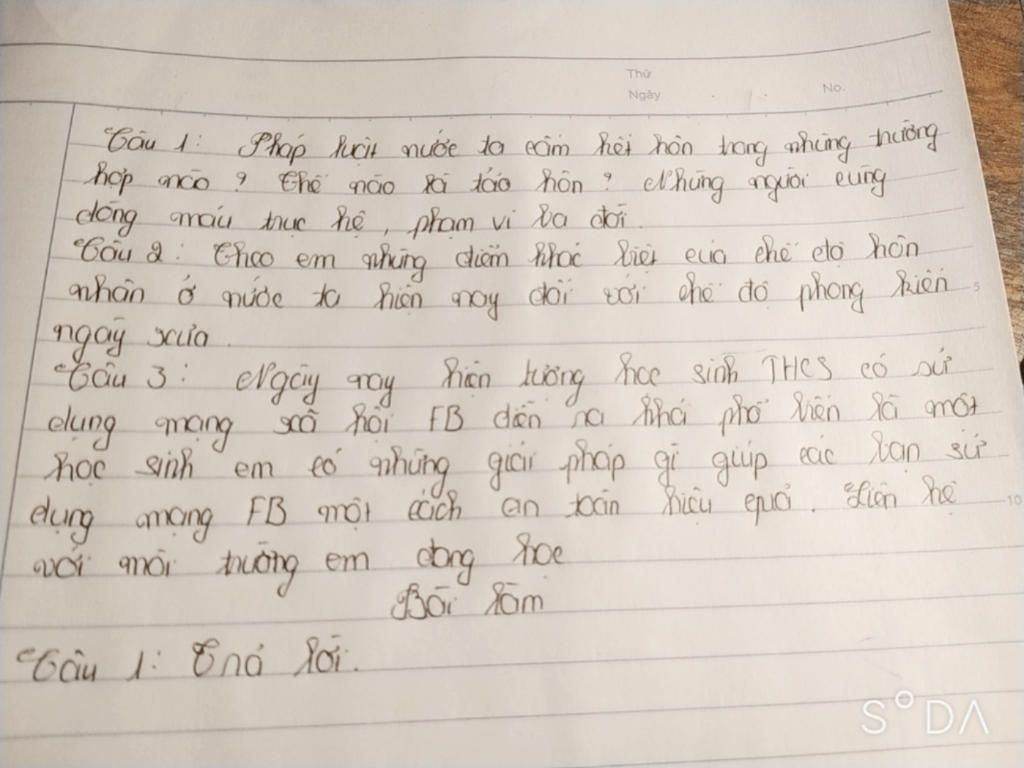 Thứ
Ngày
No.
Câu 1: Pháp luật nước ta cấm kết hôn trong những trường
hợp nào? Thế nào là tảo hôn? Những người cùng
dòng máu trực hệ, phạm vi ba đời.
Câu 2: Theo em những điểm khác biệt của chế độ hôn
nhân ở nước ta hiện nay đối với chế độ phong kiến
5
ngày xưa.
Câu 3: Ngày nay hiện tượng học sinh THCS có sử
dụng mạng xã hội FB diễn ra khá phổ biến là một
học sinh em có những giải pháp gì giúp các bạn sử
dụng mạng FB một cách an toàn hiệu quả. Liên hệ
10
với môi trường em đang học
Bài làm
Câu 1: Trả lời.
S°DA